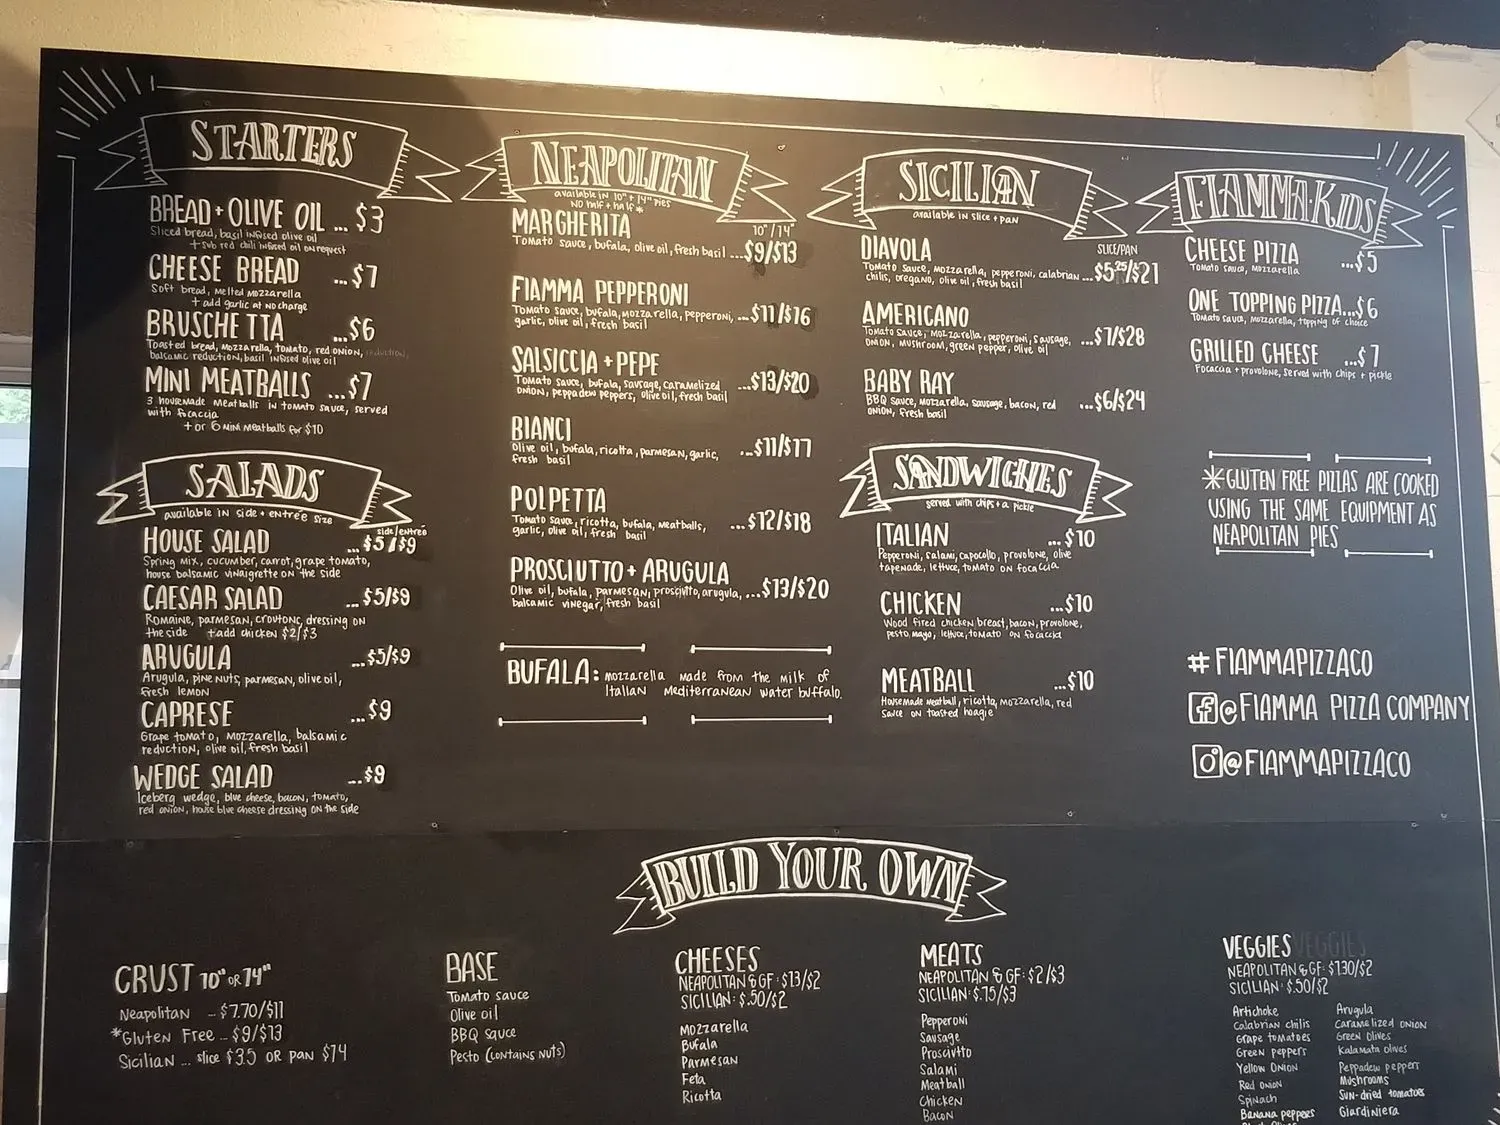 STARTERS
BREAD + OLIVE OIL ... $3
Sliced bread, basil infused olive oil
+ sub red chili infused oil on request
CHEESE BREAD ... $7
Soft bread, melted mozzarella
+ add garlic at no charge
BRUSCHETTA ...$6
Toasted bread, mozzarella, tomato, red onion, reduction,
balsamic reduction, basil infused olive oil
MINI MEATBALLS ... $7
3 housemade meatballs in tomato sauce, served
with focaccia
+ or 6 mini meatballs for $10
SALADS
available in side + entrée size
side/entrée
HOUSE SALAD ... $5/$9
Spring mix, cucumber, carrot, grape tomato,
house balsamic vinaigrette on the side
CAESAR SALAD ...$5/$9
Romaine, parmesan, croutons, dressing on
the side +add chicken $2/$3
ARUGULA ...$5/$9
Arugula, pine nuts, parmesan, olive oil,
fresh lemon
CAPRESE ...$9
Grape tomato, mozzarella, balsamic
reduction, olive oil, fresh basil
WEDGE SALAD ...$9
Iceberg wedge, blue cheese, bacon, tomato,
red onion, house blue cheese dressing on the side
NEAPOLITAN
available in 10" + 14" pies
NO half + half *
10"/14"
MARGHERITA
Tomato sauce, bufala, olive oil, fresh basil ...$9/$13
FIAMMA PEPPERONI
Tomato sauce, bufala, mozzarella, pepperoni, ...$11/$16
garlic, olive oil, fresh basil
SALSICCIA + PEPE
Tomato sauce, bufala, sausage, caramelized ...$13/$20
onion, peppadew peppers, olive oil, fresh basil
BIANCI
Olive oil, bufala, ricotta, parmesan, garlic, ...$11/$17
fresh basil
POLPETTA
Tomato sauce, ricotta, bufala, meatballs, ...$12/$18
garlic, olive oil, fresh basil
PROSCIUTTO + ARUGULA
Olive oil, bufala, parmesan, prosciutto, arugula, ...$13/$20
balsamic vinegar, fresh basil
BUFALA: mozzarella made from the milk of
Italian Mediterranean water buffalo.
SICILIAN
available in slice + pan
SLICE/PAN
DIAVOLA
Tomato sauce, mozzarella, pepperoni, calabrian ...$5.25/$21
chilis, oregano, olive oil, fresh basil
AMERICANO
Tomato sauce, mozzarella, pepperoni, sausage, ...$7/$28
onion, mushroom, green pepper, olive oil
BABY RAY
BBQ sauce, mozzarella, sausage, bacon, red ...$6/$24
onion, fresh basil
SANDWICHES
served with chips + a pickle
ITALIAN ...$10
Pepperoni, salami, capocollo, provolone, olive
tapenade, lettuce, tomato on focaccia
CHICKEN ...$10
Wood fired chicken breast, bacon, provolone,
pesto mayo, lettuce, tomato on focaccia
MEATBALL ...$10
Housemade meatball, ricotta, mozzarella, red
sauce on toasted hoagie
FIAMMA·KIDS
CHEESE PIZZA ...$5
Tomato sauce, mozzarella
ONE TOPPING PIZZA...$6
Tomato sauce, mozzarella, topping of choice
GRILLED CHEESE ...$7
Focaccia + provolone, served with chips + pickle
*GLUTEN FREE PIZZAS ARE COOKED
USING THE SAME EQUIPMENT AS
NEAPOLITAN PIES
# FIAMMAPIZZACO
f @FIAMMA PIZZA COMPANY
@FIAMMAPIZZACO
BUILD YOUR OWN
CRUST 10" OR 14"
Neapolitan ... $7.70/$11
*Gluten Free ... $9/$13
Sicilian ... slice $3.5 OR PAN $14
BASE
Tomato sauce
Olive oil
BBQ sauce
Pesto (contains nuts)
CHEESES
NEAPOLITAN & GF: $1.3/$2
SICILIAN: $.50/$2
Mozzarella
Bufala
Parmesan
Feta
Ricotta
MEATS
NEAPOLITAN & GF: $2/$3
SICILIAN: $.75/$3
Pepperoni
Sausage
Prosciutto
Salami
Meatball
Chicken
Bacon
VEGGIES VEGGIES
NEAPOLITAN & GF: $1.30/$2
SICILIAN: $.50/$2
Artichoke
Calabrian chilis
Grape tomatoes
Green peppers
Yellow onion
Red onion
Spinach
Banana peppers
Arugula
Caramelized onion
Green Olives
Kalamata olives
Peppadew peppers
Mushrooms
Sun-dried tomatoes
Giardiniera